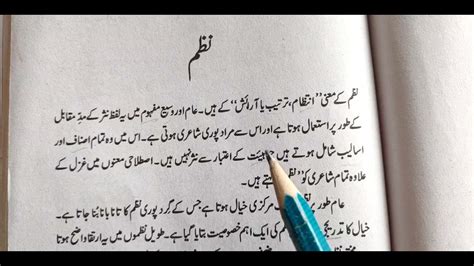 نظم
نظم کے معنی "انتظام، ترتیب یا آرائش" کے ہیں۔ عام اور وسیع مفہوم میں یہ لفظ نثر کے مدِّ مقابل
کے طور پر استعمال ہوتا ہے اور اس سے مراد پوری شاعری ہوتی ہے۔ اس میں وہ تمام اصناف اور
اسالیب شامل ہوتے ہیں جو ہیئت کے اعتبار سے نثر نہیں ہیں۔ اصطلاحی معنوں میں غزل کے
علاوہ تمام شاعری کو "نظم" کہتے ہیں۔
عام طور پر مرکزی خیال ہوتا ہے جس کے گرد پوری نظم کا تانا بانا بُنا جاتا ہے۔
خیال کا تدریجی نظم کی ایک اہم خصوصیت بتایا گیا ہے۔ طویل نظموں میں یہ ارتقا واضح ہوتا